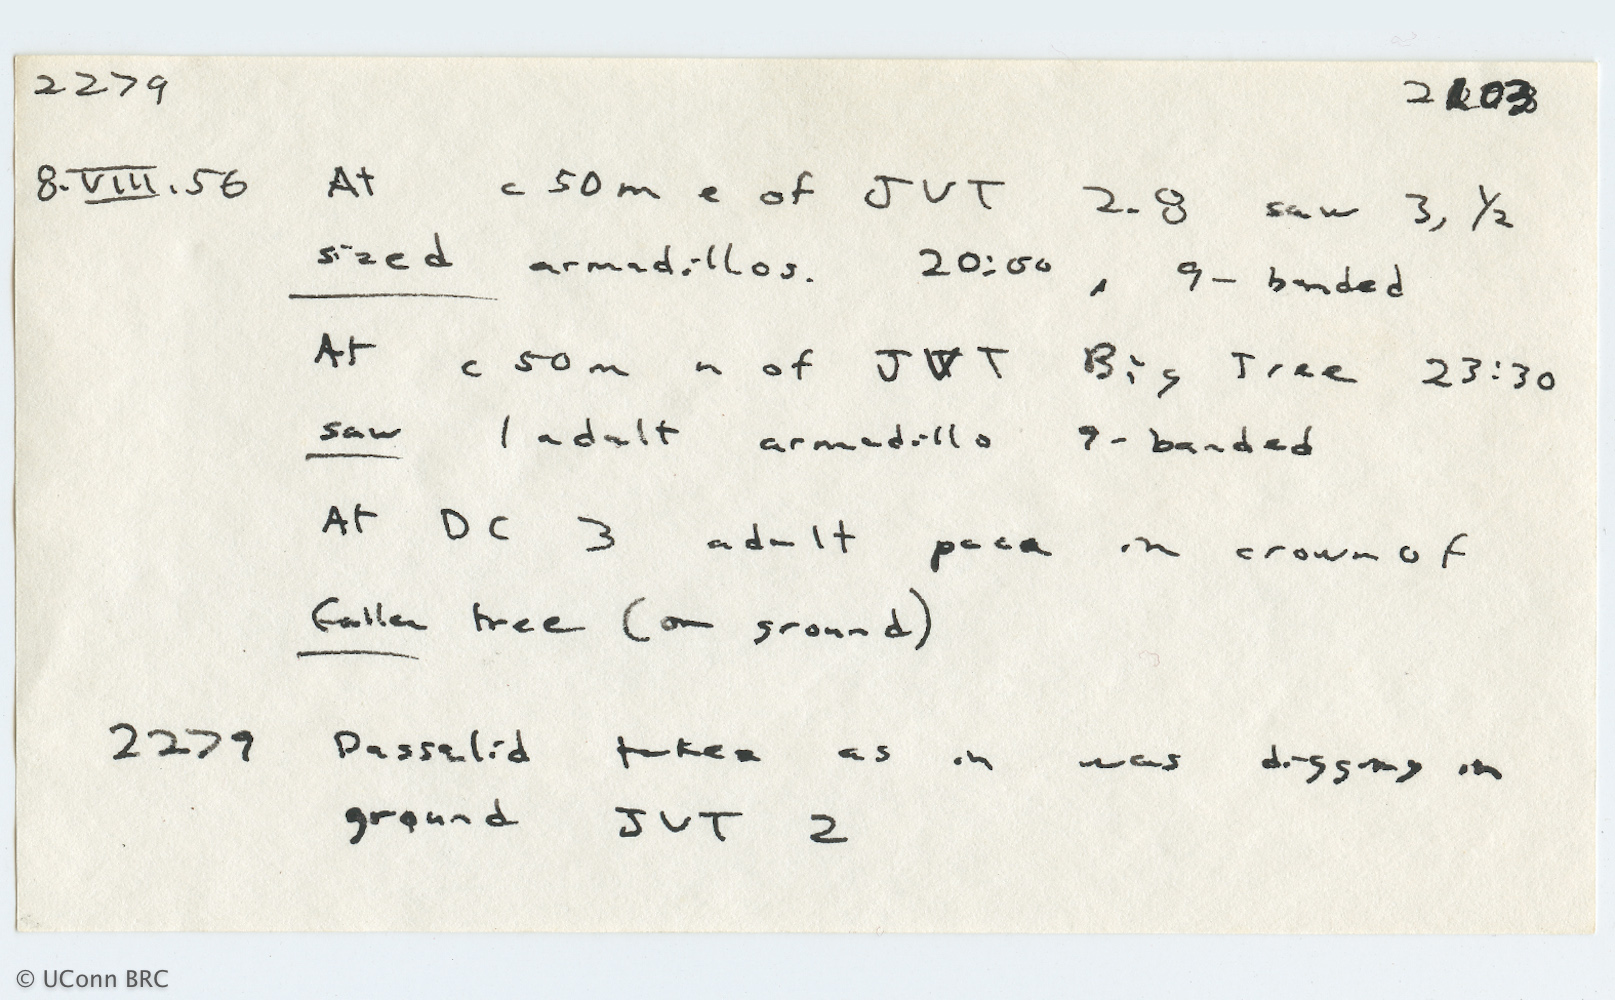 2279 2203
8.VIII.56 At c 50 m e of JVT 2.8 saw 3, 1/2
sized armadillos. 20:00, 9-banded
At c 50 m n of JVT Big Tree 23:30
saw 1 adult armadillo 9-banded
At DC 3 adult paca in crown of
fallen tree (on ground)
2279 Passalid taken as in was digging in
ground JVT 2
© UConn BRC